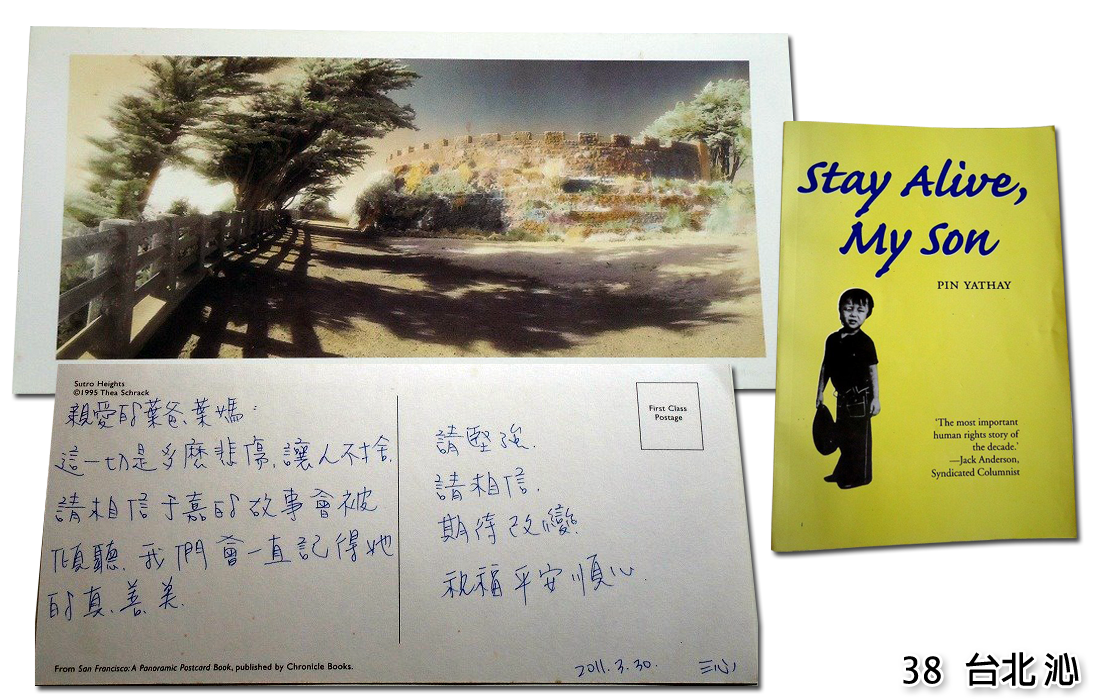 Sutro Heights
©1995 Thea Schrack
親愛的葉爸、葉媽:
這一切是多麼悲傷,讓人不捨,
請相信于嘉的故事會被
傾聽,我們會一直記得她
的真、善、美.
First Class
Postage
請堅強.
請相信.
期待改變.
祝福平安順心.
2011.3.30.
From San Francisco: A Panoramic Postcard Book, published by Chronicle Books.
Stay Alive,
My Son
PIN YATHAY
'The most important
human rights story of
the decade.'
—Jack Anderson,
Syndicated Columnist
38 台北 沁